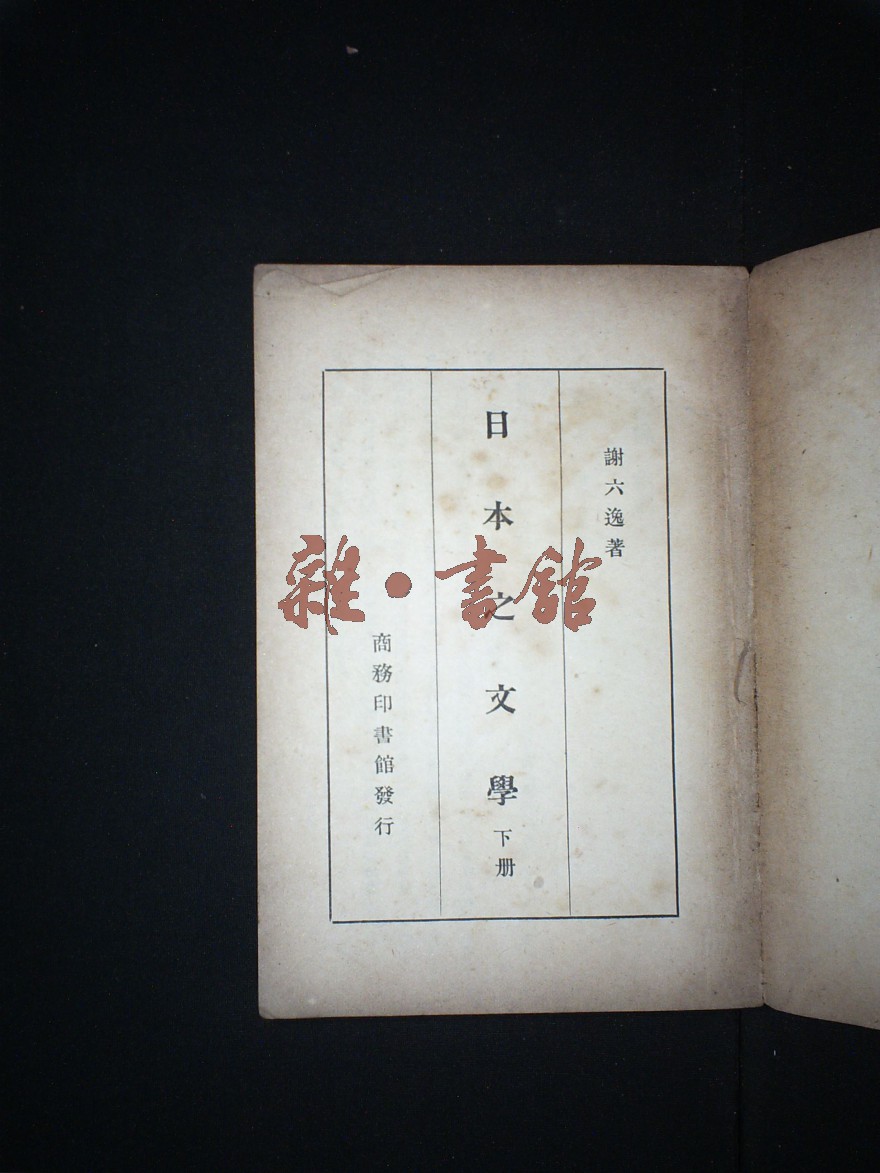 謝六逸著
日本之文學 下册
商務印書館發行
雜·書館